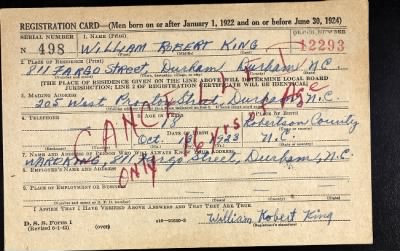 REGISTRATION CARD—(Men born on or after January 1, 1922 and on or before June 30, 1924)
SERIAL NUMBER 1. NAME (Print) ORDER NUMBER
N 498 WILLIAM ROBERT KING 12293
2. PLACE OF RESIDENCE (Print)
811 FARGO STREET, Durham, Durham, N.C.
[THE PLACE OF RESIDENCE GIVEN ON THE LINE ABOVE WILL DETERMINE LOCAL BOARD
JURISDICTION; LINE 2 OF REGISTRATION CERTIFICATE WILL BE IDENTICAL]
3. MAILING ADDRESS
205 West Proctor Street, Durham, N.C.
4. TELEPHONE
Robertson County
Oct. 1923 N.C.
CANCELLED
ONLY 16 Yrs of Age
7. NAME AND ADDRESS OF PERSON WHO WILL ALWAYS KNOW YOUR ADDRESS
KING, 811 Fargo Street, Durham, N.C.
8. EMPLOYER'S NAME AND ADDRESS
9. PLACE OF EMPLOYMENT OR BUSINESS
I AFFIRM THAT I HAVE VERIFIED ABOVE ANSWERS AND THAT THEY ARE TRUE.
D. S. S. Form 1
(Revised 6-1-42) (over)
William Robert King
(Registrant's signature)